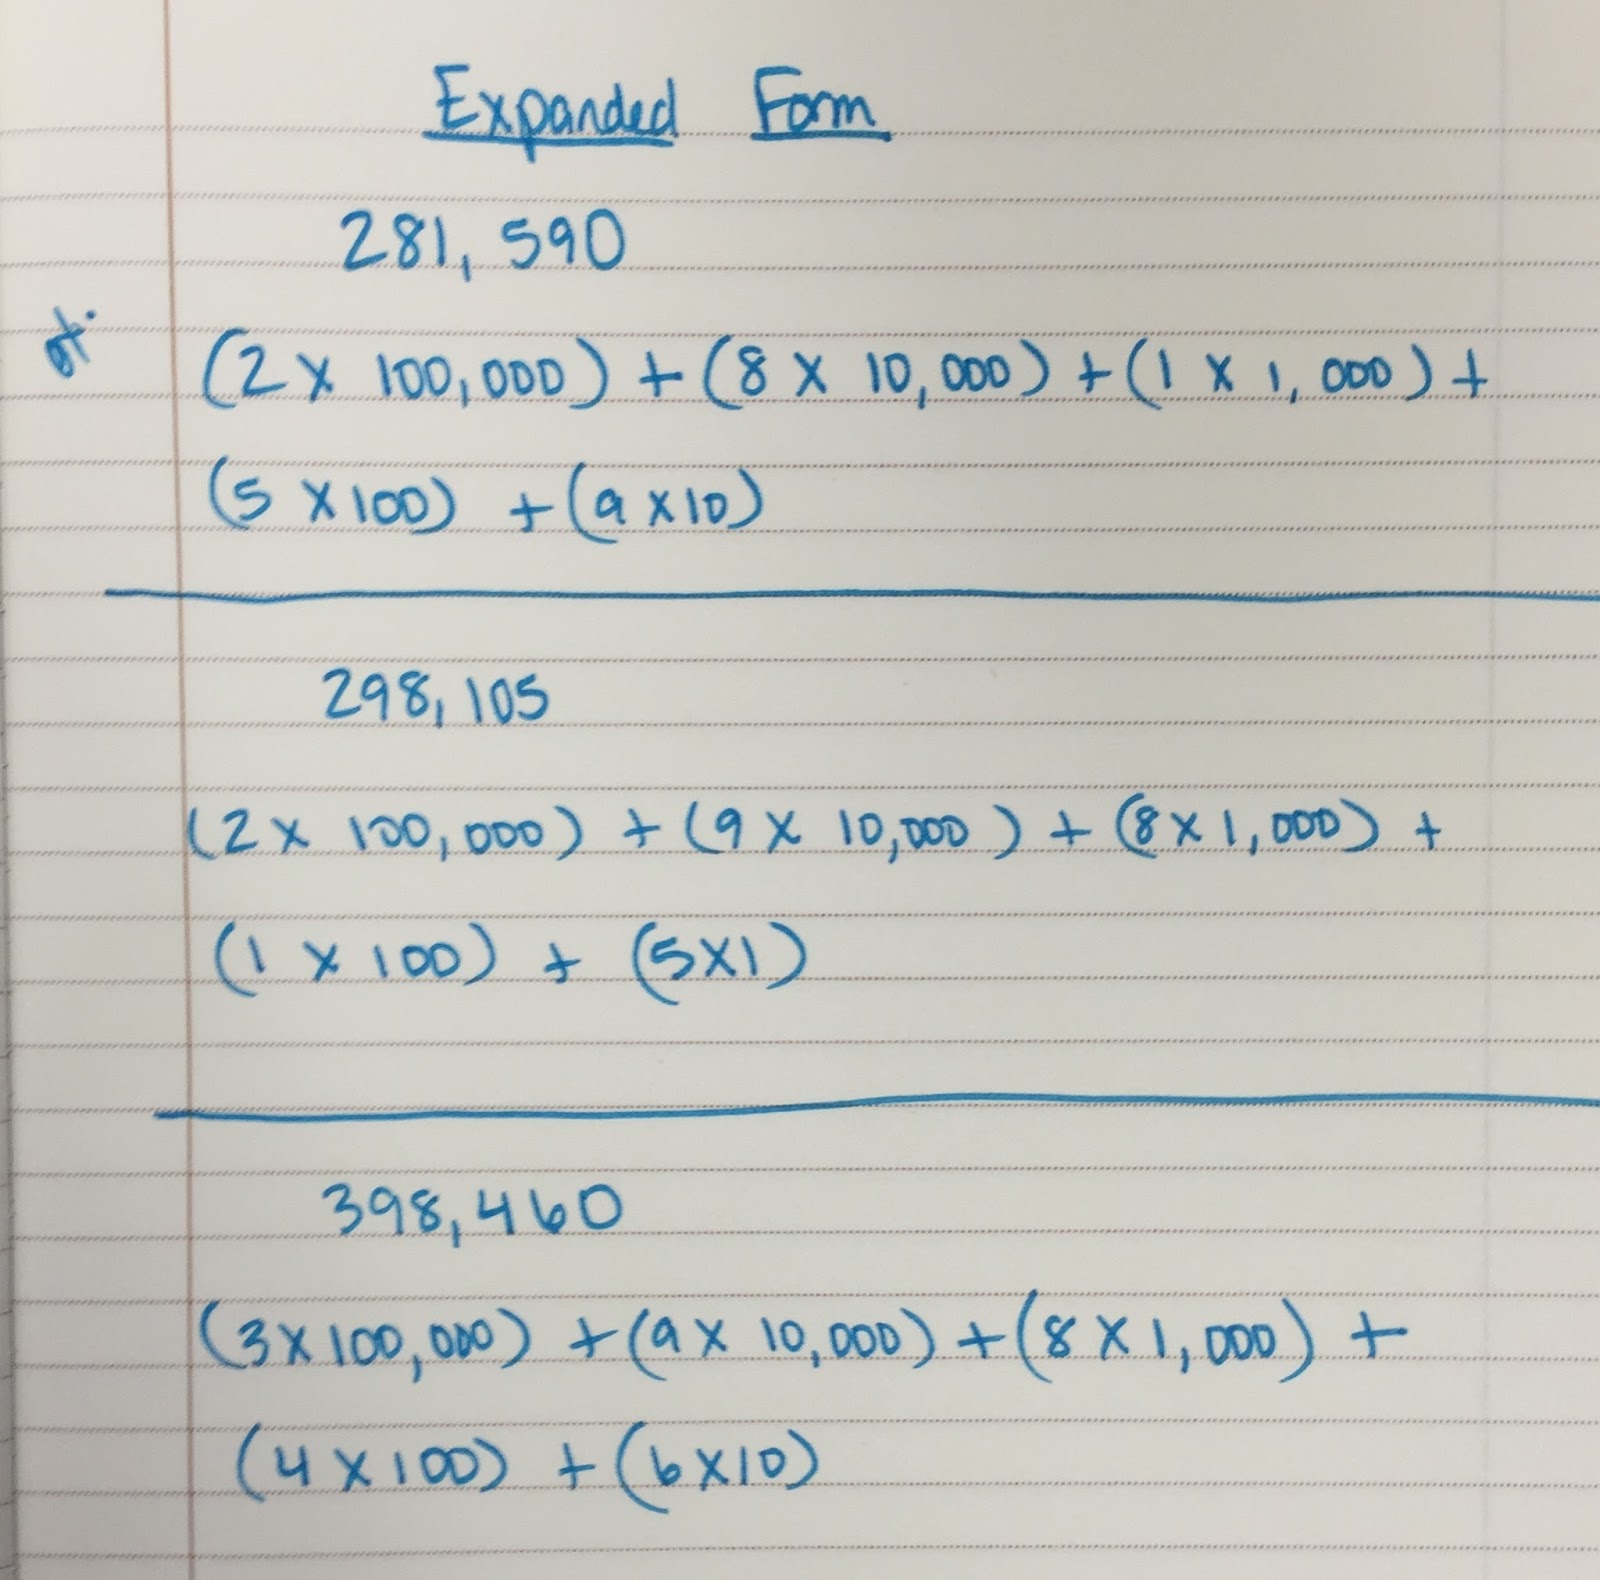 Expanded Form
281,590
(2 x 100,000) + (8 x 10,000) + (1 x 1,000) +
(5 x 100) + (9 x 10)
298,105
(2 x 100,000) + (9 x 10,000) + (8 x 1,000) +
(1 x 100) + (5 x 1)
398,460
(3 x 100,000) + (9 x 10,000) + (8 x 1,000) +
(4 x 100) + (6 x 10)